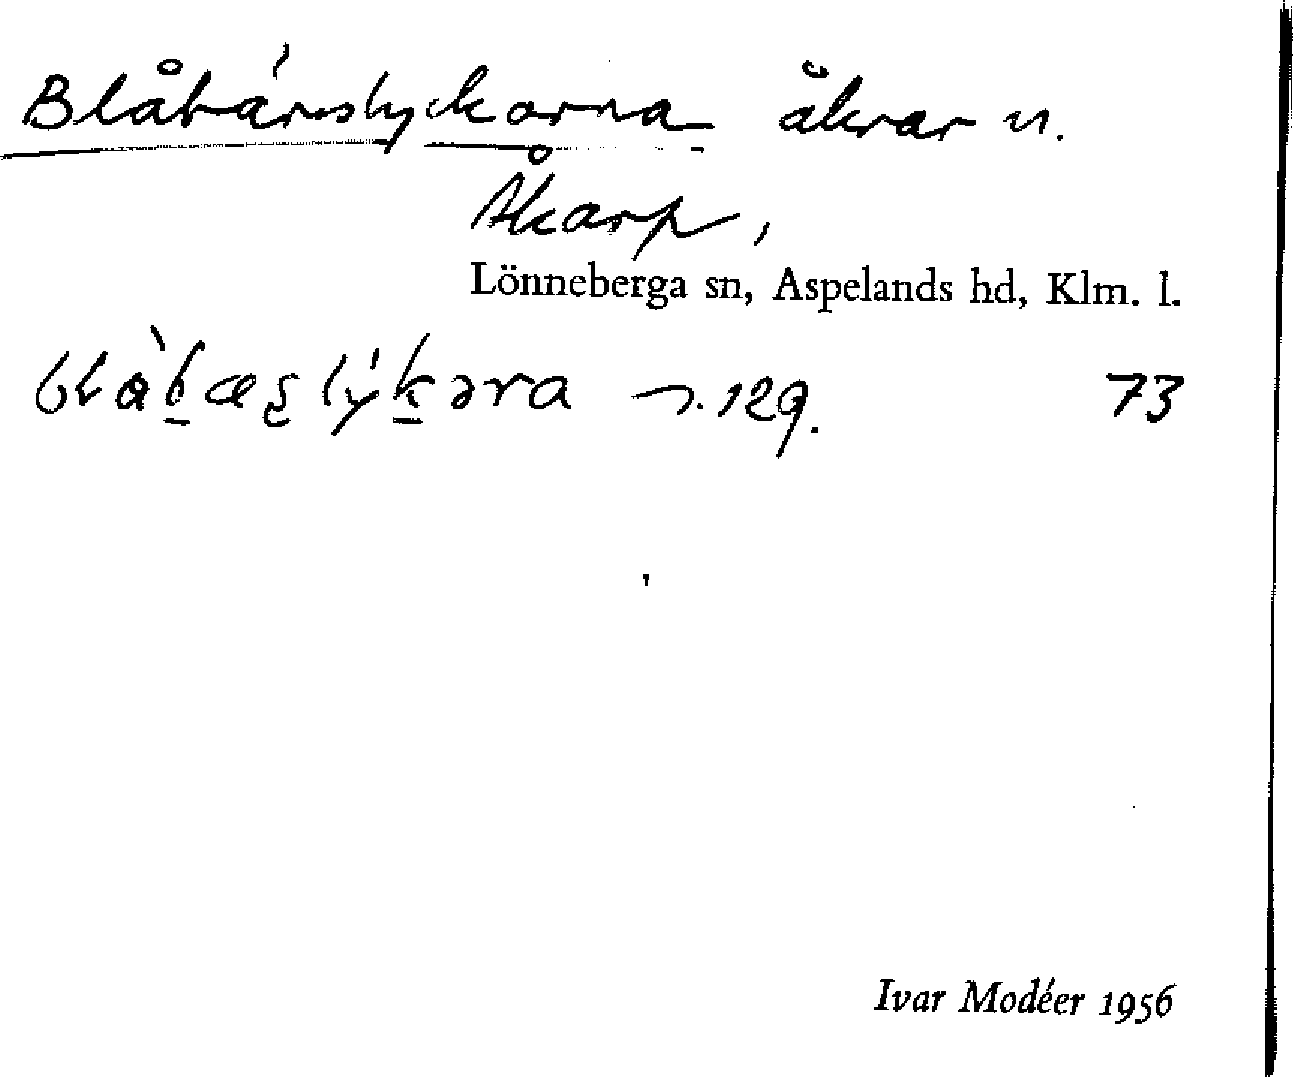 Blåbärslyckorna åkrar n.
Åkarp,
Lönneberga sn, Aspelands hd, Klm. l.
129. 73
Ivar Modéer 1956